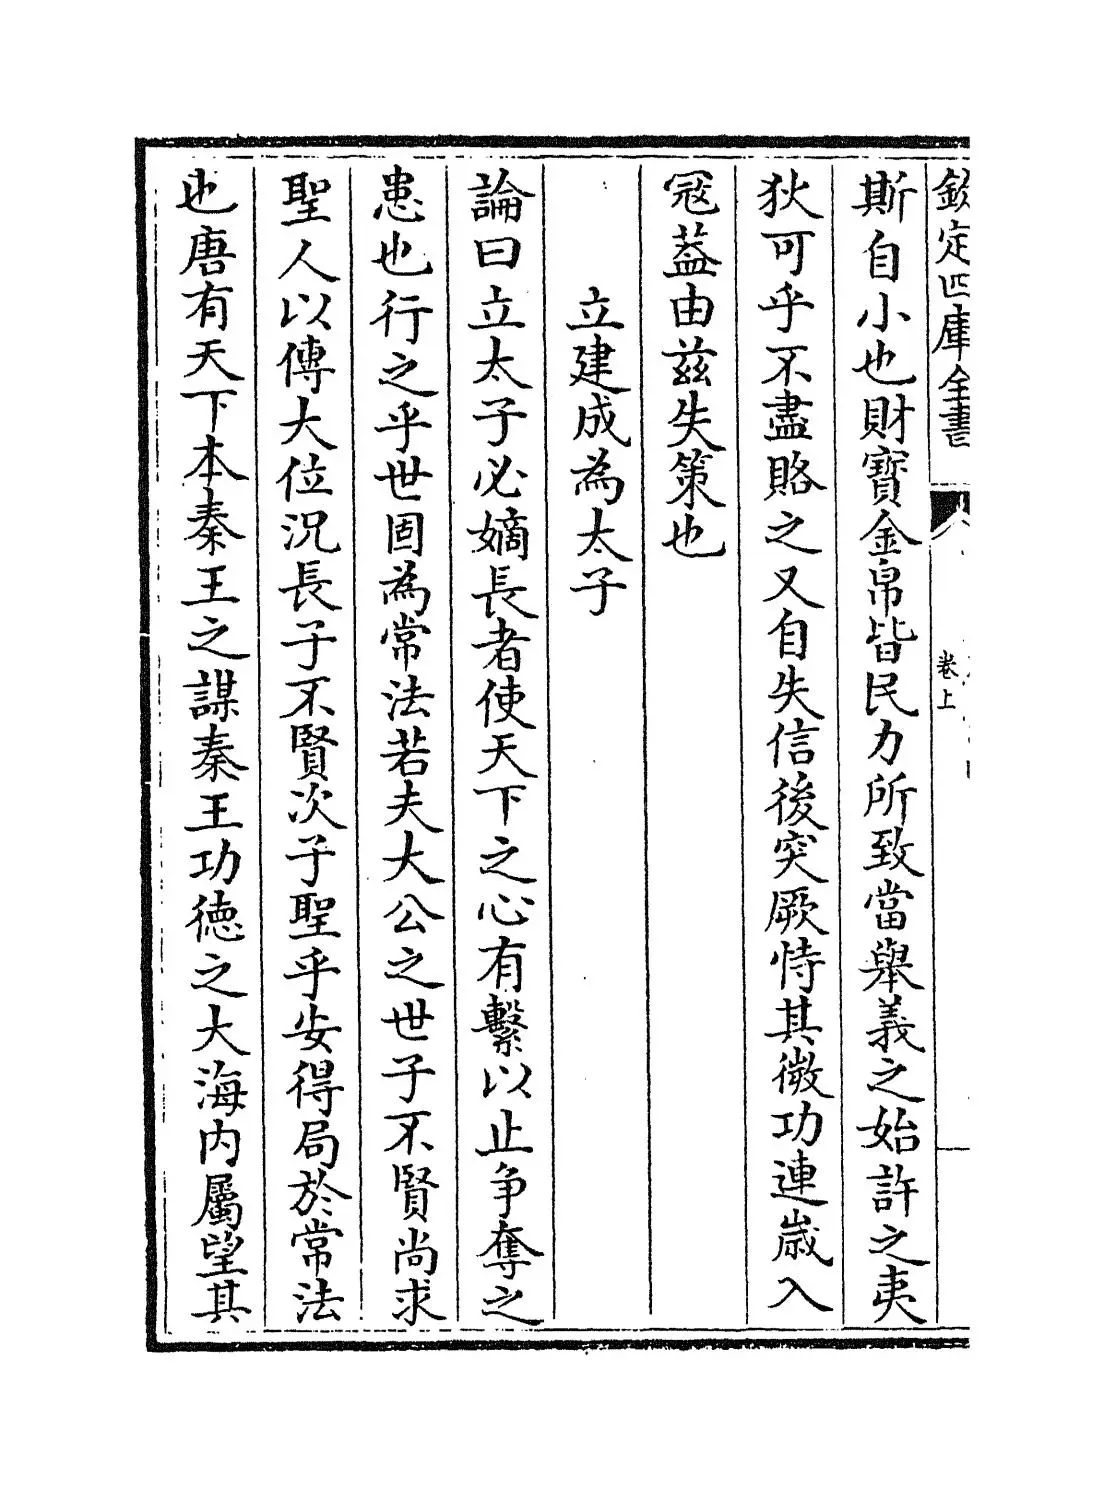 欽定四庫全書
卷上
斯自小也財寶金帛皆民力所致當舉義之始許之夷
狄可乎不盡賂之又自失信後突厥恃其微功連歳入
冦葢由兹失策也
立建成為太子
論曰立太子必嫡長者使天下之心有繫以止争奪之
患也行之乎世固為常法若夫大公之世子不賢尚求
聖人以傳大位況長子不賢次子聖乎安得局於常法
也唐有天下本秦王之謀秦王功徳之大海内屬望其